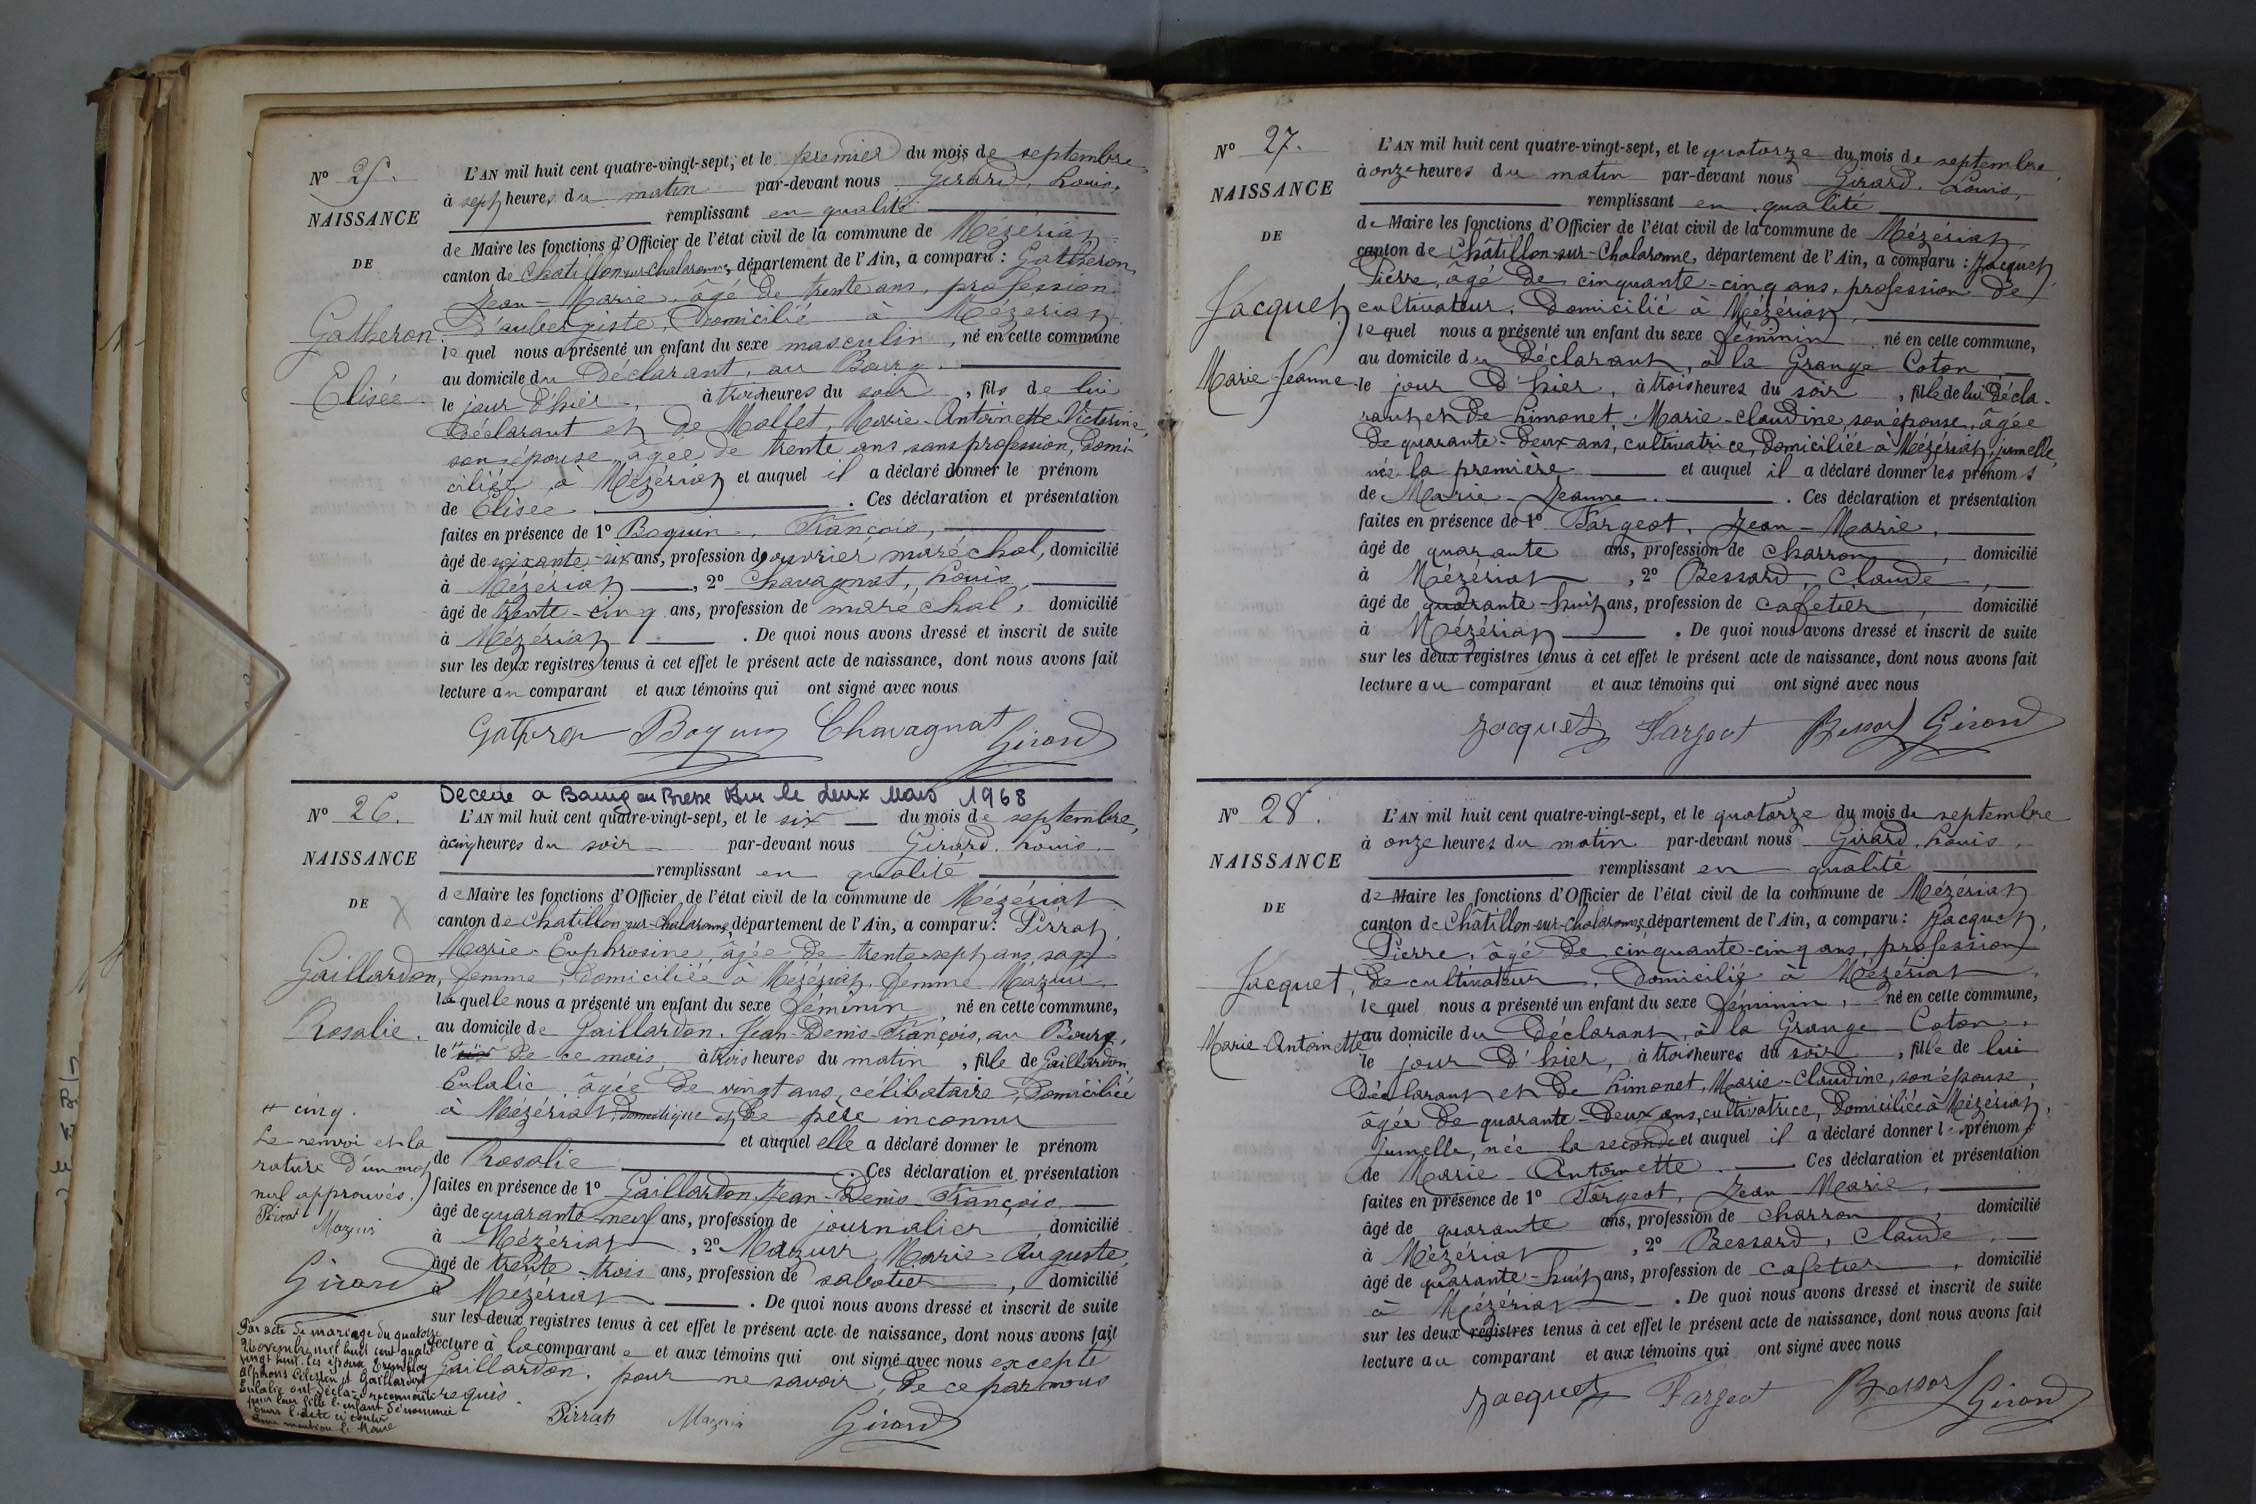 N° 25.
NAISSANCE
DE
Gatheron
Elisée
L'AN mil huit cent quatre-vingt-sept, et le premier du mois de septembre,
à sept heures du matin par-devant nous Girard, Louis,
remplissant en qualité
de Maire les fonctions d'Officier de l'état civil de la commune de Mézériat
canton de Chatillon-sur-Chalaronne, département de l'Ain, a comparu : Gatheron,
Jean-Marie, âgé de trente ans, profession
d'aubergiste, domicilié à Mézériat
lequel nous a présenté un enfant du sexe masculin, né en cette commune
au domicile du déclarant, au Bourg.
le jour d'hier, à trois heures du soir, fils de lui
déclarant et de Mollet, Marie-Antoinette-Victorine,
son épouse, âgée de trente ans, sans profession, domi-
ciliée à Mézériat et auquel il a déclaré donner le prénom
de Elisée. Ces déclaration et présentation
faites en présence de 1° Boquin, François,
âgé de soixante-six ans, profession d'ouvrier maréchal, domicilié
à Mézériat, 2° Chavagnat, Louis,
âgé de trente-cinq ans, profession de maréchal, domicilié
à Mézériat. De quoi nous avons dressé et inscrit de suite
sur les deux registres tenus à cet effet le présent acte de naissance, dont nous avons fait
lecture au comparant et aux témoins qui ont signé avec nous
Gatheron Boquin Chavagnat Girard
Décédé a Bourg en Bresse Ain le deux Mars 1968
N° 26.
NAISSANCE
DE
Gaillardon,
Rosalie.
L'AN mil huit cent quatre-vingt-sept, et le six du mois de septembre,
à cinq heures du soir par-devant nous Girard, Louis.
remplissant en qualité
de Maire les fonctions d'Officier de l'état civil de la commune de Mézériat
canton de Chatillon-sur-Chalaronne, département de l'Ain, a comparu : Pirrat,
Marie-Euphrosine, âgée de trente-sept ans, sage
femme, domiciliée à Mézériat, femme Mazuir
laquelle nous a présenté un enfant du sexe féminin né en cette commune,
au domicile de Gaillardon, Jean-Denis-François, au Bourg,
le " six de ce mois, à trois heures du matin, fille de Gaillardon,
Eulalie, âgée de vingt ans, célibataire, domiciliée
à Mézériat, domestique et de père inconnu
et auquel elle a déclaré donner le prénom
de Rosalie. Ces déclaration et présentation
faites en présence de 1° Gaillardon, Jean-Denis-François
âgé de quarante-neuf ans, profession de journalier, domicilié
à Mézériat, 2° Mazuir, Marie-Auguste,
âgé de trente-trois ans, profession de sabotier, domicilié
à Mézériat. De quoi nous avons dressé et inscrit de suite
sur les deux registres tenus à cet effet le présent acte de naissance, dont nous avons fait
lecture à la comparante et aux témoins qui ont signé avec nous excepté
Gaillardon, pour ne savoir, de ce par nous
requis.
Pirrat Mazuir Girard
" cinq.
Le renvoi et la
rature d'un mot
nul approuvés.
Pirrat Mazuir
Girard
Par acte de mariage du quatorze
Novembre mil huit cent quatre
vingt huit, les époux Tremblay
Alphonse Célestin et Gaillardon
Eulalie ont déclaré reconnaître
pour leur fille l'enfant dénommée
dans l'acte ci contre
Pour mention le Maire
N° 27.
NAISSANCE
DE
Jacquet
Marie-Jeanne
L'AN mil huit cent quatre-vingt-sept, et le quatorze du mois de septembre,
à onze heures du matin par-devant nous Girard, Louis,
remplissant en qualité
de Maire les fonctions d'Officier de l'état civil de la commune de Mézériat
canton de Châtillon-sur-Chalaronne, département de l'Ain, a comparu : Jacquet,
Pierre, âgé de cinquante-cinq ans, profession de
cultivateur, domicilié à Mézériat,
lequel nous a présenté un enfant du sexe féminin né en cette commune,
au domicile du déclarant, à la Grange Coton
le jour d'hier, à trois heures du soir, fille de lui décla-
rant et de Limonet, Marie-Claudine, son épouse, âgée
de quarante-deux ans, cultivatrice, domiciliée à Mézériat, jumelle,
née la première et auquel il a déclaré donner les prénoms
de Marie-Jeanne. Ces déclaration et présentation
faites en présence de 1° Fargeot, Jean-Marie,
âgé de quarante ans, profession de charron, domicilié
à Mézériat, 2° Bessard, Claude,
âgé de quarante-huit ans, profession de cafetier, domicilié
à Mézériat. De quoi nous avons dressé et inscrit de suite
sur les deux registres tenus à cet effet le présent acte de naissance, dont nous avons fait
lecture au comparant et aux témoins qui ont signé avec nous
Jacquet Fargeot Bessard Girard
N° 28.
NAISSANCE
DE
Jacquet,
Marie-Antoinette
L'AN mil huit cent quatre-vingt-sept, et le quatorze du mois de septembre
à onze heures du matin par-devant nous Girard, Louis,
remplissant en qualité
de Maire les fonctions d'Officier de l'état civil de la commune de Mézériat
canton de Châtillon-sur-Chalaronne, département de l'Ain, a comparu : Jacquet,
Pierre, âgé de cinquante-cinq ans, profession
de cultivateur, domicilié à Mézériat,
lequel nous a présenté un enfant du sexe féminin, né en cette commune,
au domicile du déclarant, à la Grange Coton,
le jour d'hier, à trois heures du soir, fille de lui
déclarant et de Limonet, Marie-Claudine, son épouse,
âgée de quarante-deux ans, cultivatrice, domiciliée à Mézériat,
jumelle, née la seconde et auquel il a déclaré donner les prénoms
de Marie-Antoinette. Ces déclaration et présentation
faites en présence de 1° Fargeot, Jean-Marie,
âgé de quarante ans, profession de charron, domicilié
à Mézériat, 2° Bessard, Claude,
âgé de quarante-huit ans, profession de cafetier, domicilié
à Mézériat. De quoi nous avons dressé et inscrit de suite
sur les deux registres tenus à cet effet le présent acte de naissance, dont nous avons fait
lecture au comparant et aux témoins qui ont signé avec nous
Jacquet Fargeot Bessard Girard